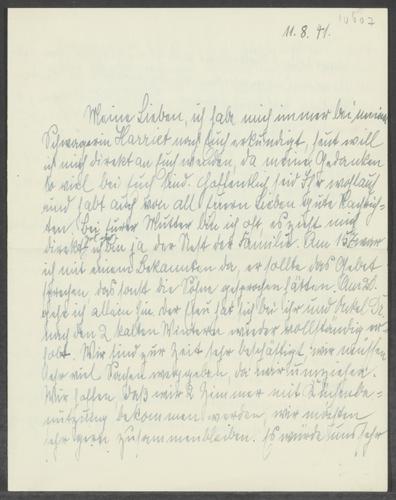 10807
11.8.41.
Meine Lieben, ich habe mich immer bei meiner
Schwägerin Harriet nach Euch erkundigt, heut will
ich mich direkt an Euch wenden, da meine Gedanken
so viel bei Euch sind. Hoffentlich seid Ihr wohlauf
und habt auch von all Euern Lieben gute Nachrich-
ten. Bei Eurer Mutter bin ich oft, es zieht mich
direkt, ich bin ja der Rest der Familie. Am 15. war
ich mit einem Bekannten da, er sollte das Gebet
sprechen, das sonst die Söhne gesprochen hätten.
gehe ich allein hin. Der Efeu hat sich bei ihr und Onkel
nach den 2 kalten Wintern wieder vollständig er-
holt. Wir sind zur Zeit sehr beschäftigt, wir müssen
sehr viel Sachen weggeben, da wir umziehen.
Wir hoffen, daß wir 2 Zimmer mit Küchenbe-
nutzung bekommen werden, wir möchten
sehr gern zusammenbleiben. Es würde uns sehr